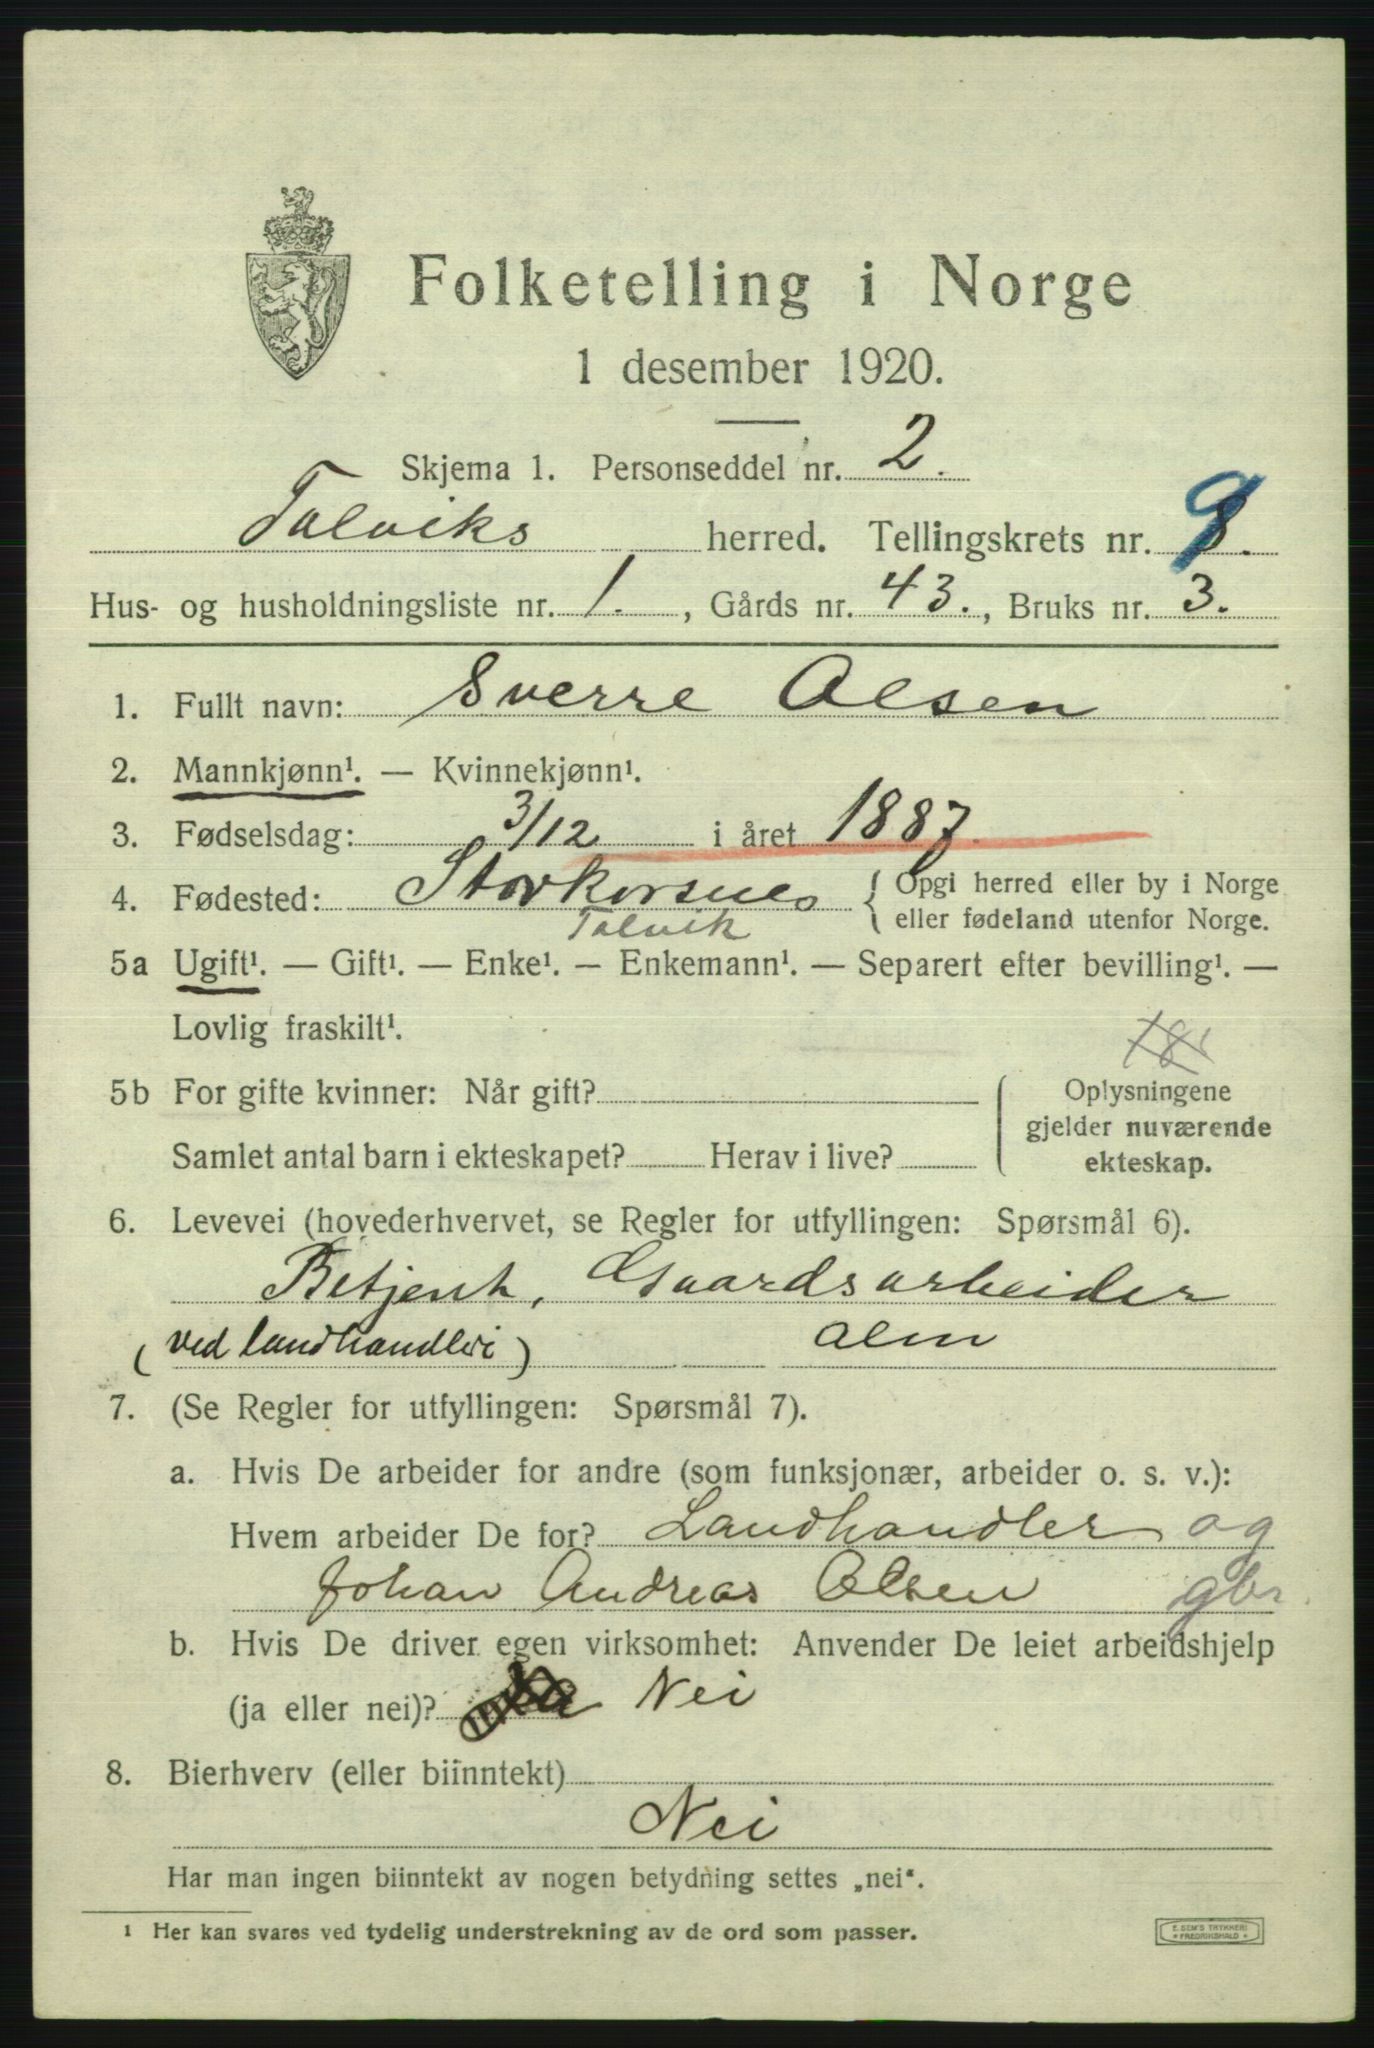 Folketelling i Norge
1 desember 1920.
Skjema 1. Personseddel nr. 2.
Talviks herred. Tellingskrets nr. 9
Hus- og husholdningsliste nr. 1., Gårds nr. 43., Bruks nr. 3.
1. Fullt navn: Sverre Olsen
2. Mannkjønn¹. — Kvinnekjønn¹.
3. Fødselsdag: 3/12 i året 1887.
4. Fødested: Storkorsnes { Opgi herred eller by i Norge
eller fødeland utenfor Norge.
Talvik
5a Ugift¹. — Gift¹. — Enke¹. — Enkemann¹. — Separert efter bevilling¹. —
Lovlig fraskilt¹.
5b For gifte kvinner: Når gift?
Samlet antal barn i ekteskapet? Herav i live?
Oplysningene
gjelder nuværende
ekteskap.
6. Levevei (hovederhvervet, se Regler for utfyllingen: Spørsmål 6).
Betjent, Gaardsarbeider
(ved landhandleri) alm
7. (Se Regler for utfyllingen: Spørsmål 7).
a. Hvis De arbeider for andre (som funksjonær, arbeider o. s. v.):
Hvem arbeider De for? Landhandler og
Johan Andreas Olsen gbr.
b. Hvis De driver egen virksomhet: Anvender De leiet arbeidshjelp
(ja eller nei)? Nei
8. Bierhverv (eller biinntekt)
Nei
Har man ingen biinntekt av nogen betydning settes „nei“.
¹ Her kan svares ved tydelig understrekning av de ord som passer.
E. SEM'S TRYKKERI
* FREDRIKSHALD *